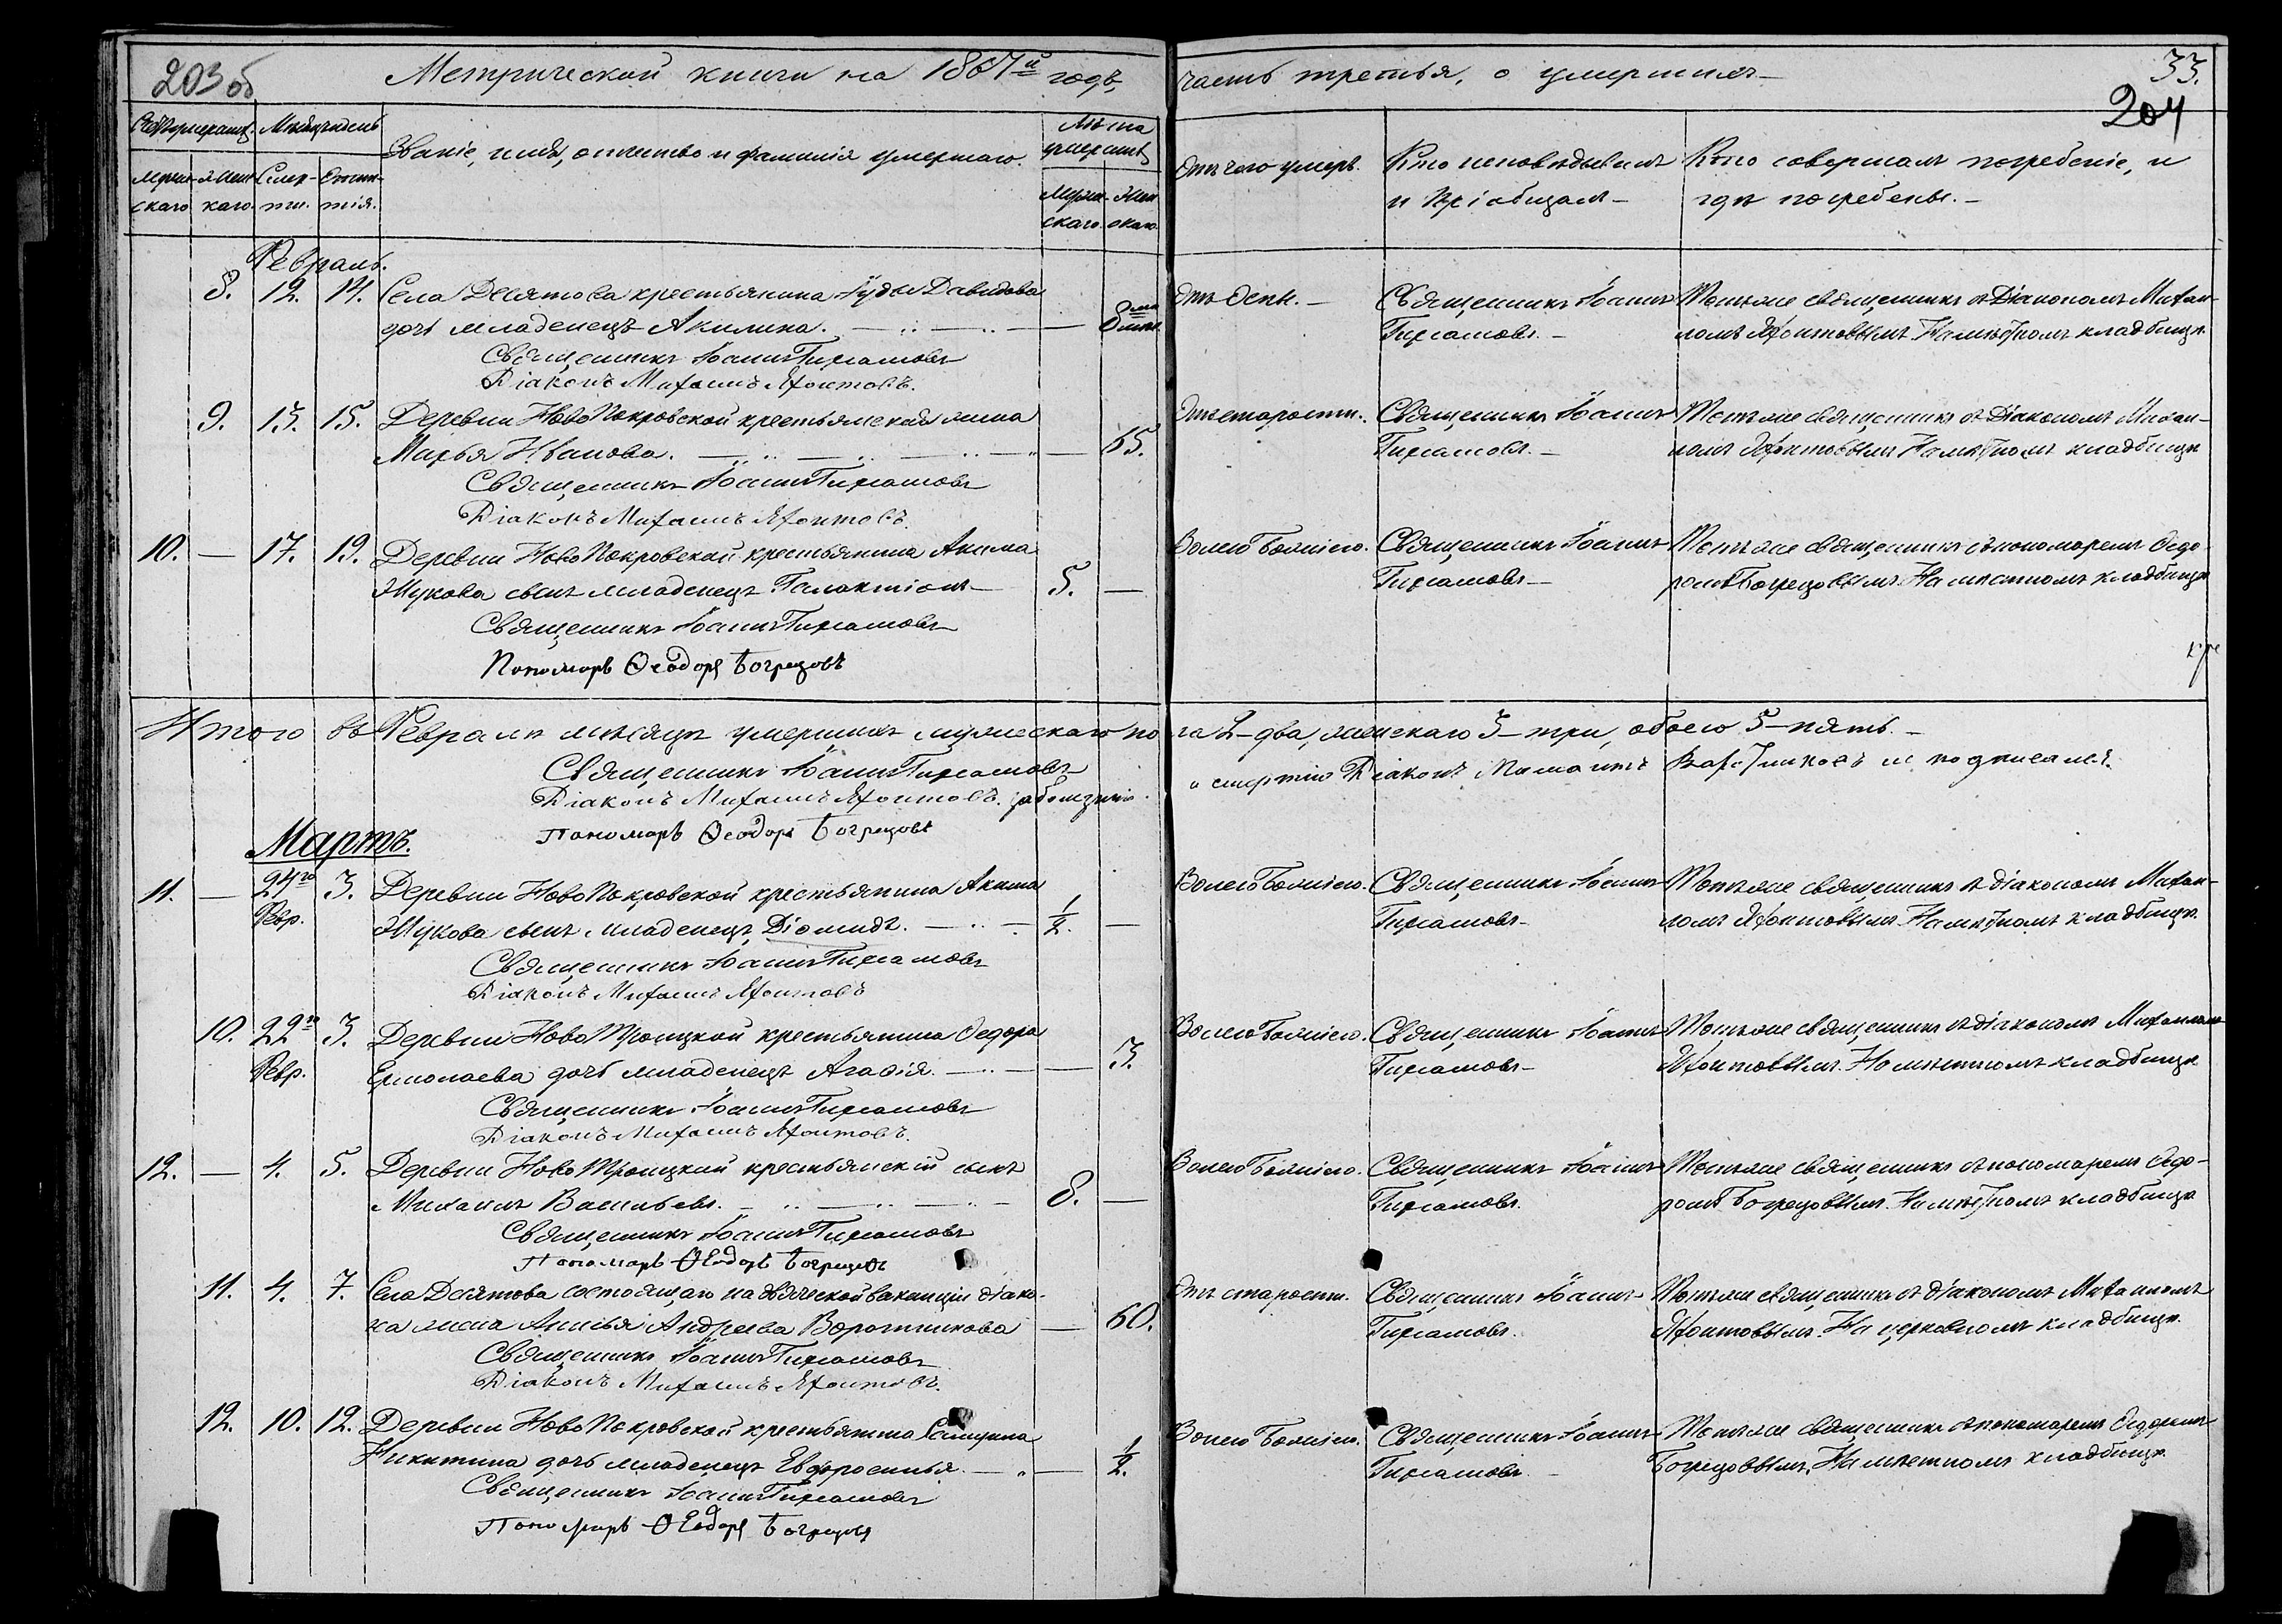 203об
Метрической книги на 1867й годъ, часть третья, о умершихъ
33.
204
Счетъ умершихъ. Мѣсяцъ и день Званіе, имя, отчество и фамилія умершаго. Лѣта умершихъ Отъ чего умеръ. Кто исповѣдывалъ и пріобщалъ Кто совершалъ погребеніе, и гдѣ погребены.
Мужескаго Женскаго. Смерти. Погребенія. Мужескаго. Женскаго.
Февраль.
8. 12. 14. Села Десятова крестьянина Іуды Давидова Отъ Оспы. Священникъ Іоаннъ Тотъже священникъ съ Діакономъ Михаи-
дочь младенецъ Акилина. 8 мѣс. Гирсамовъ. ломъ Яхонтовымъ. На мѣстномъ кладбищѣ.
Священникъ Іоаннъ Гирсамовъ
Діаконъ Михаилъ Яхонтовъ.
9. 13. 15. Деревни НовоПокровской крестьянская жена Отъ старости. Священникъ Іоаннъ Тотъже священникъ съ Діакономъ Михаи-
Марья Иванова. 65. Гирсамовъ. ломъ Яхонтовымъ На мѣстномъ кладбищѣ
Священникъ Іоаннъ Гирсамовъ
Діаконъ Михаилъ Яхонтовъ.
10. — 17. 19. Деревни НовоПокровской крестьянина Акима Волею Божіею. Священникъ Іоаннъ Тотъже священникъ съ пономаремъ Ѳедо-
Жукова сынъ младенецъ Галактіонъ 5. — Гирсамовъ ромъ Богрецовымъ. На мѣстномъ кладбищѣ
Священникъ Іоаннъ Гирсамовъ
Пономарь Ѳеодоръ Богрецовъ
Итого въ Февралѣ мѣсяцѣ умершихъ мужескаго пола 2-два, женскаго 3-три, обоего 5-пять.
Священникъ Іоаннъ Гирсамовъ
Діаконъ Михаилъ Яхонтовъ. за болѣзнію и смертію Діаконъ и не подписался.
Пономарь Ѳеодоръ Богрецовъ
Мартъ.
11. — 24го 3. Деревни НовоПокровской крестьянина Акима Волею Божіею. Священникъ Іоаннъ Тотъже священникъ съ діакономъ Михаи-
Февр. Жукова сынъ младенецъ Діомидъ. 1/2. — Гирсамовъ ломъ Яхонтовымъ. На мѣстномъ кладбищѣ.
Священникъ Іоаннъ Гирсамовъ
Діаконъ Михаилъ Яхонтовъ
10. 22го 3. Деревни НовоТроицкой крестьянина Ѳедора Волею Божіею. Священникъ Іоаннъ Тотъже священникъ съ діакономъ Михаиломъ
Февр. Ермолаева дочь младенецъ Агаѳія. 3. Гирсамовъ Яхонтовымъ. На мѣстномъ кладбищѣ
Священникъ Іоаннъ Гирсамовъ
Діаконъ Михаилъ Яхонтовъ.
12. — 4. 5. Деревни НовоТроицкой крестьянскій сынъ Волею Божіею. Священникъ Іоаннъ Тотъже священникъ съ пономаремъ Ѳедо-
Михаилъ Васильевъ. 8. — Гирсамовъ. ромъ Богрецовымъ. На мѣстномъ кладбищѣ
Священникъ Іоаннъ Гирсамовъ
Пономарь Ѳеодоръ Богрецовъ
11. 4. 7. Села Десятова состоящаго на дьяческой вакансіи діако- Отъ старости. Священникъ Іоаннъ Тотъже священникъ съ діакономъ Михаиломъ
на жена Анисья Андреева Воротникова 60. Гирсамовъ. Яхонтовымъ. На церковномъ кладбищѣ.
Священникъ Іоаннъ Гирсамовъ
Діаконъ Михаилъ Яхонтовъ.
12. 10. 12. Деревни НовоПокровской крестьянина Волею Божіею. Священникъ Іоаннъ Тотъже священникъ съ пономаремъ Ѳедоромъ
Никитина дочь младенецъ Евфросинья. 1/2. Гирсамовъ. Богрецовымъ. На мѣстномъ кладбищѣ.
Священникъ Іоаннъ Гирсамовъ
Пономарь Ѳеодоръ Богрецовъ